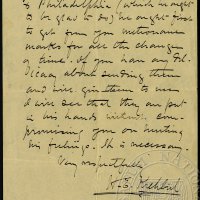 to Philadelphia (which he ought
to be glad to do) he ought first
to get from you metronome
marks for all the changes
of time. If you have an
about sending them
and will give them to me
I will see that they are put
in his hands without com-
promising you or hurting
his feelings. It is necessary.
Very respectfully
H. E. Krehbiel